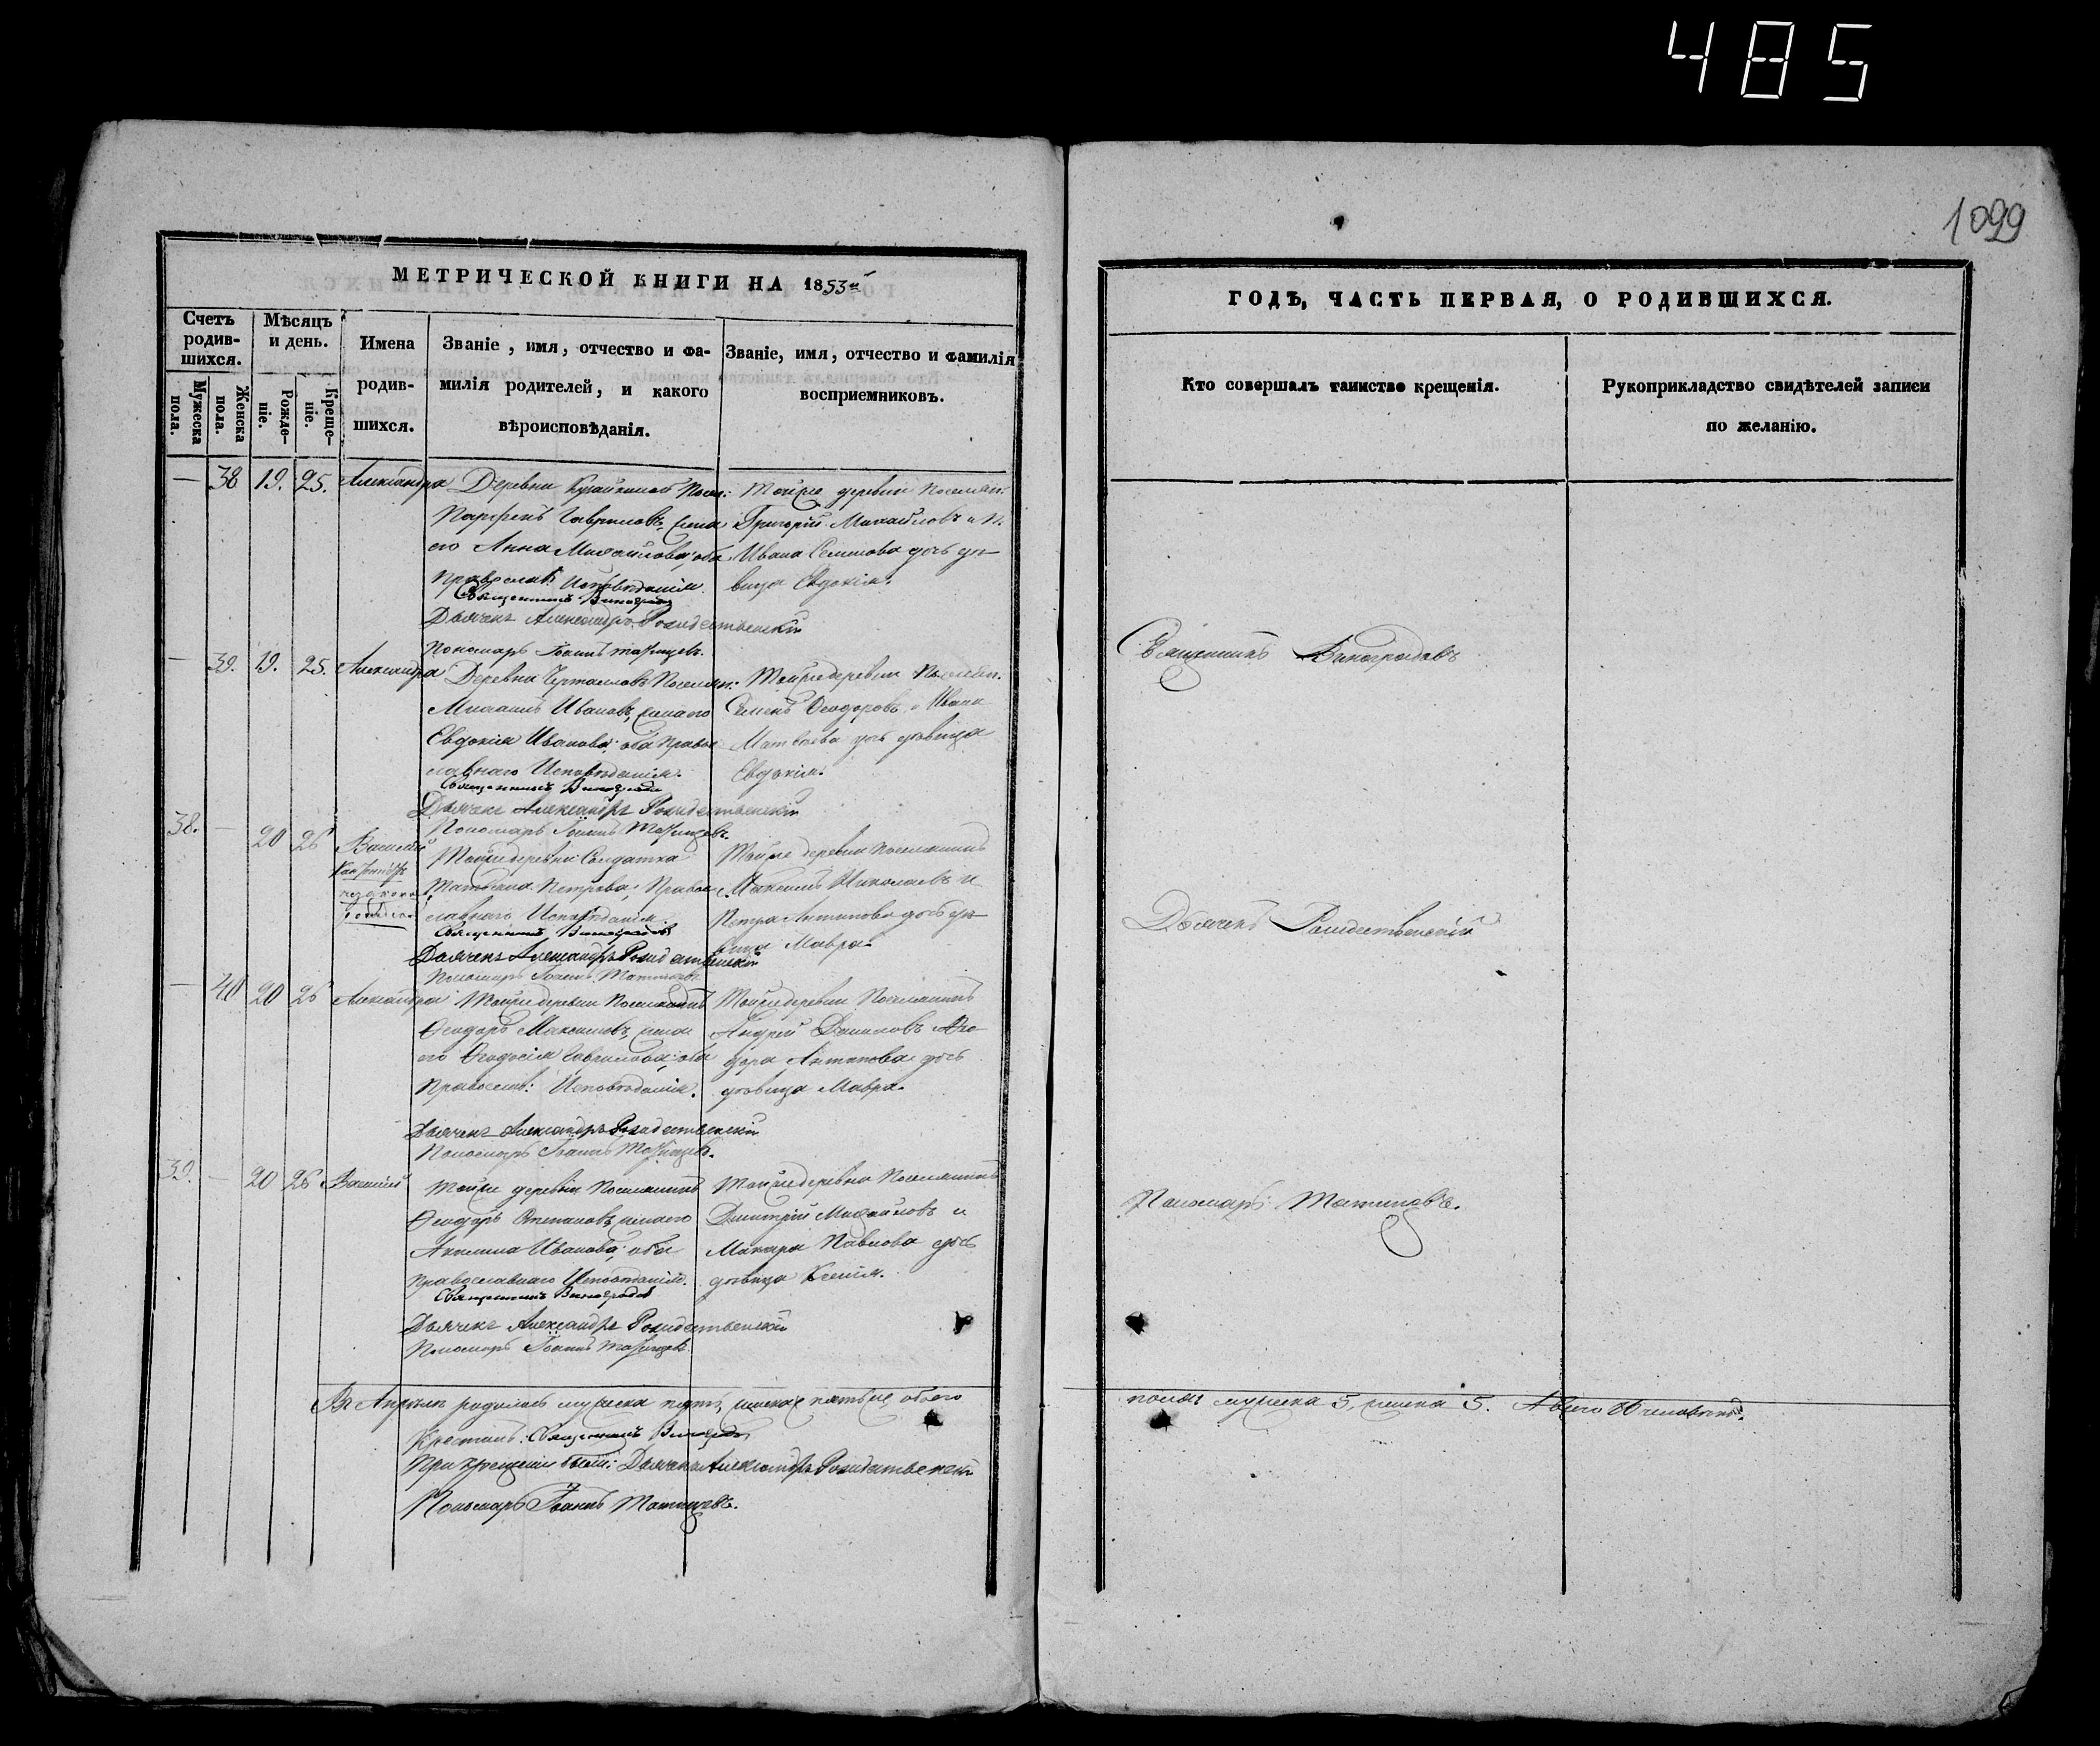 485
1099
МЕТРИЧЕСКОЙ КНИГИ НА 1853й
Счетъ родившихся.
Мѣсяцъ и день.
Имена родившихся.
Званіе, имя, отчество и фамилія родителей, и какого вѣроисповѣданія.
Званіе, имя, отчество и фамилія воспріемниковъ.
Мужеска пола.
Женска пола.
Рожденіе.
Крещеніе.
— 38 19. 25. Александра
Деревни Посел:
Парфенъ Гавриловъ, жена
его Анна Михайлова; оба
Православ: Исповѣданія.
Священникъ Виноградов
Дьячекъ Александръ Рождественскій
Пономарь Іоаннъ Татищевъ.
Тойже деревни Поселян:
Григорій Михайловъ и
Ивана Семенова дочь дѣ-
вица Евдокія.
— 39. 19. 25. Александра
Деревни Поселян:
Михаилъ Ивановъ, жена его
Евдокія Иванова; оба Право-
славнаго Исповѣданія.
Священникъ Виноградов
Дьячекъ Александръ Рождественскій
Пономарь Іоаннъ Татищевъ.
Тойже деревни Поселян:
Семенъ Ѳеодоровъ и Ивана
Матвѣева дочь дѣвица
Евдокія.
38. — 20 26 Василій
Тойже деревни Солдатка
Татьяна Петрова, Право-
славнаго Исповѣданія.
Священникъ Виноградовъ
Дьячекъ Александръ Рождественскій
Пономарь Іоаннъ Татищевъ
Тойже деревни Поселянинъ
Максимъ Николаевъ и
Петра Антипова дочь дѣ-
вица Мавра.
— 40 20 26 Александра
Тойже деревни Поселянинъ
Ѳеодоръ Максимовъ, жена
его Ѳеодосія Гаврилова; оба
Православ: Исповѣданія.
Дьячекъ Александръ Рождественскій
Пономарь Іоаннъ Татищевъ.
Тойже деревни Поселянинъ
Андрей Даниловъ и Ѳео-
дора Антипова дочь
дѣвица Мавра.
39. — 20 26 Василій
Тойже деревни Поселянинъ
Ѳеодоръ Степановъ, жена его
Акилина Иванова; оба
Православнаго Исповѣданія.
Священникъ Виноградов
Дьячекъ Александръ Рождественскій
Пономарь Іоаннъ Татищевъ
Тойже деревни Поселянинъ
Димитрій Михайловъ и
Макара Павлова дочь
дѣвица Ксенія.
Въ Апрѣлѣ родилось мужеска пять, женска пять, обоего
Крестилъ: Священникъ Виноградовъ
При крещеніи были: Дьячекъ Александръ Рождественскій
Пономарь Іоаннъ Татищевъ.
ГОДЪ, ЧАСТЬ ПЕРВАЯ, О РОДИВШИХСЯ.
Кто совершалъ таинство крещенія.
Рукоприкладство свидѣтелей записи по желанію.
Священникъ Виноградовъ
Дьячекъ Рождественскій
Пономарь Татищевъ.
пола: мужеска 5, женска 5. А всего 10 человѣкъ.